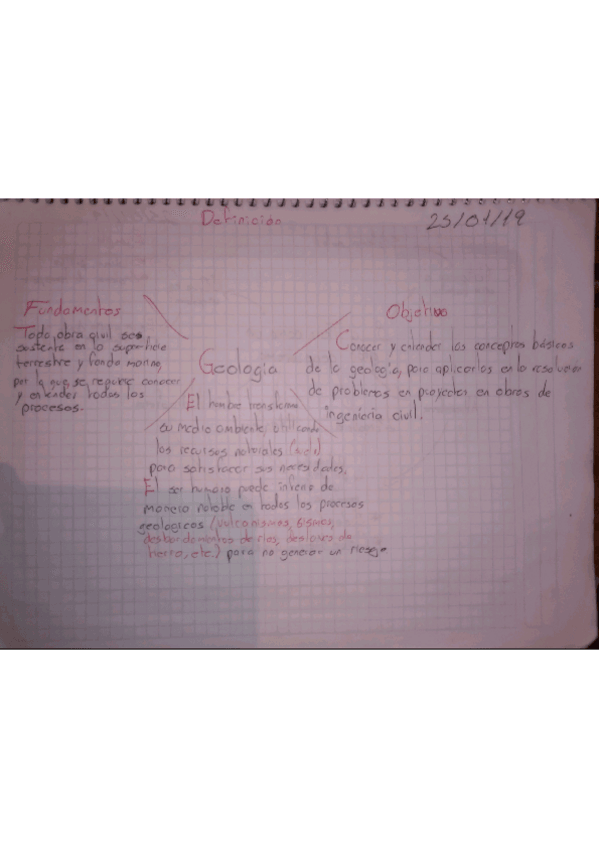 Definición
25/01/19
Fundamentos
Toda obra civil se
sustente en la superficie
terrestre y fondo marino,
por lo que se requiere conocer
y entender todos los
procesos.
Geología
Objetivo
Conocer y entender los conceptos básicos
de la geología, para aplicarlos en la resolución
de problemas en proyectos en obras de
ingeniería civil.
El hombre transforma
su medio ambiente utilizando
los recursos naturales
para satisfacer sus necesidades.
El ser humano puede de
manera notable en todos los procesos
geológicos (vulcanismos, sismos,
desbordamientos de ríos, deslaves de
tierra, etc.) para no generar un riesgo